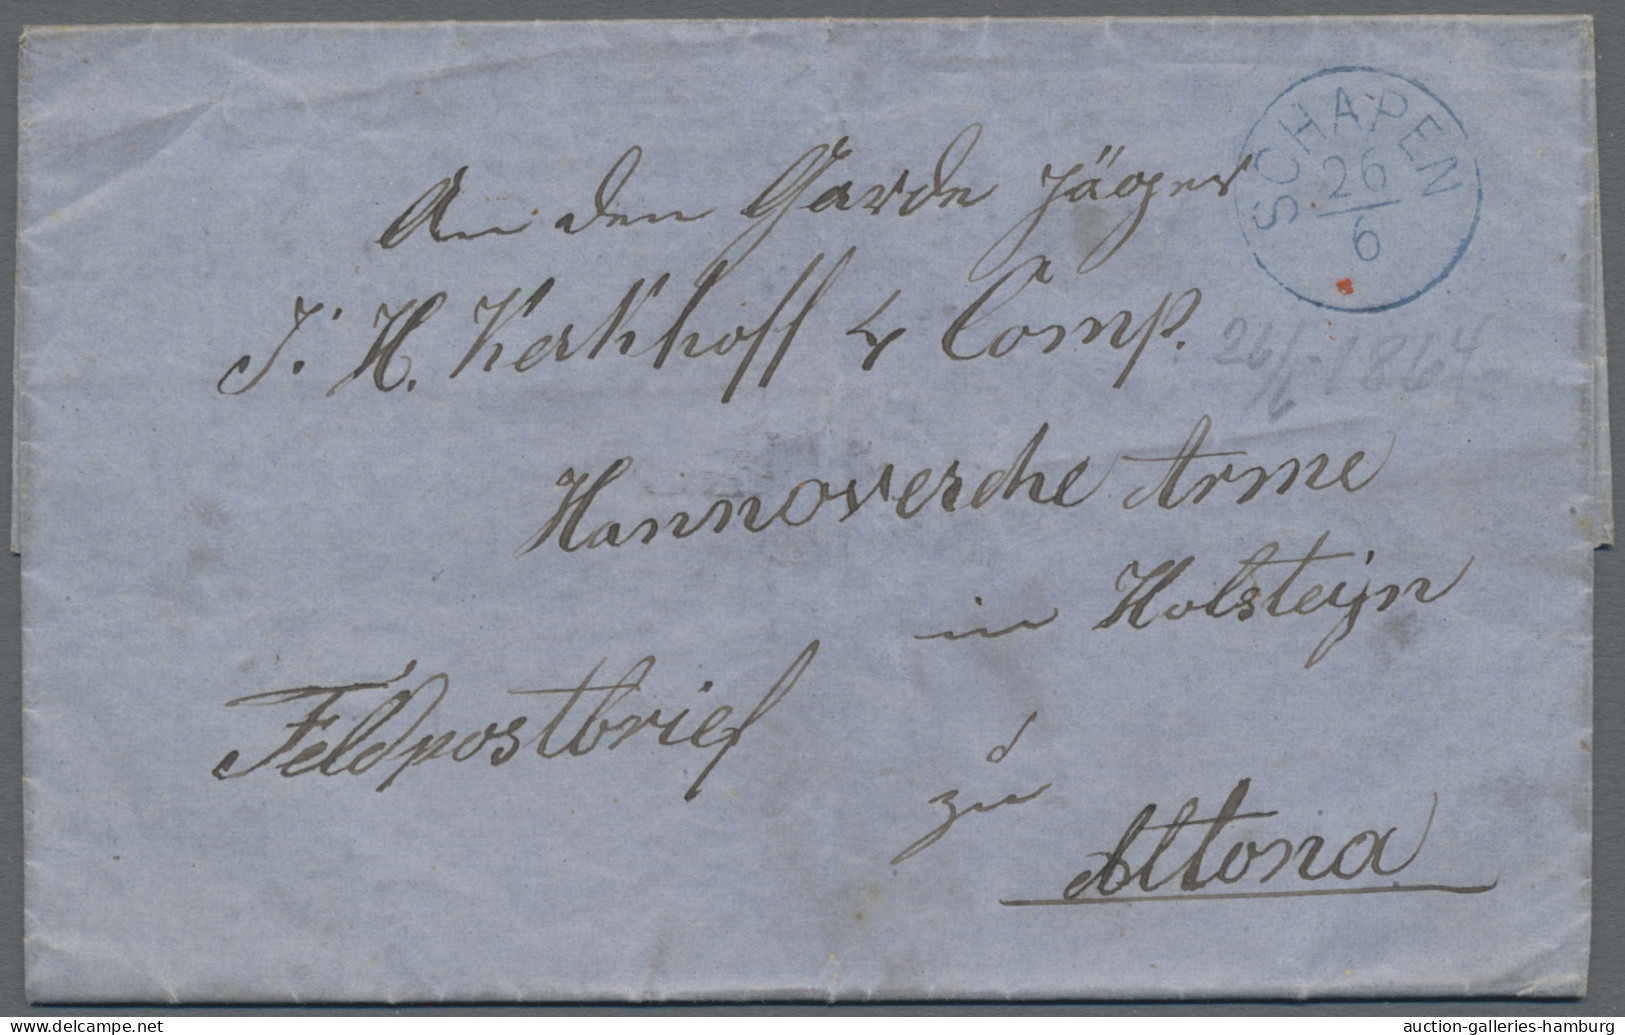 SCHAPEN
26
6
An den Garde Jäger
J. H. Kerkhoff & Comp.
26/6-1864
Hannoversche Arme
in Holsteijn
Feldpostbrief
zu
Altona
www.delcampe.net
auction-galleries-hamburg